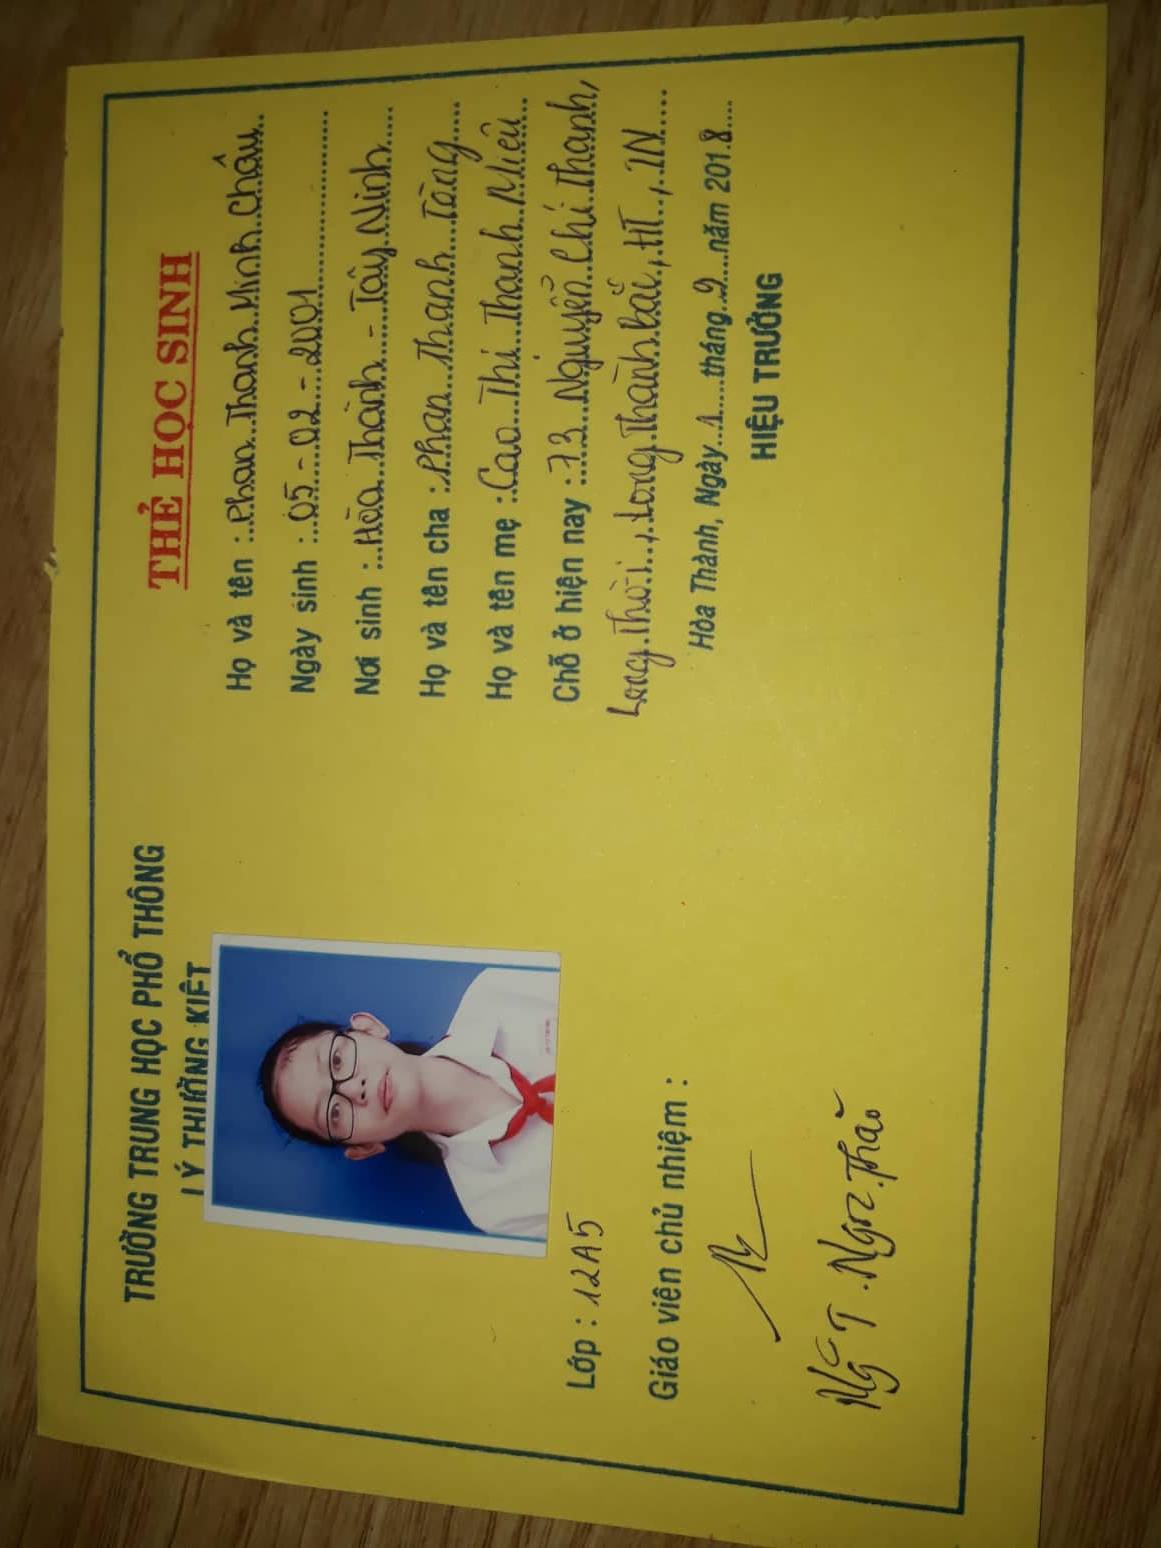 TRƯỜNG TRUNG HỌC PHỔ THÔNG
LÝ THƯỜNG KIỆT
Lớp : 12A5
Giáo viên chủ nhiệm :
Ng T. Ngọc Thảo
THẺ HỌC SINH
Họ và tên : Phan Thanh Minh Châu
Ngày sinh : 05 - 02 - 2001
Nơi sinh : Hòa Thành - Tây Ninh
Họ và tên cha : Phan Thanh Tòng
Họ và tên mẹ : Cao Thị Thanh Miêu
Chỗ ở hiện nay : 73 Nguyễn Chí Thanh,
Long Thời, Long Thành Bắc, HT, TN
Hòa Thành, Ngày 1 tháng 9 năm 2018
HIỆU TRƯỞNG